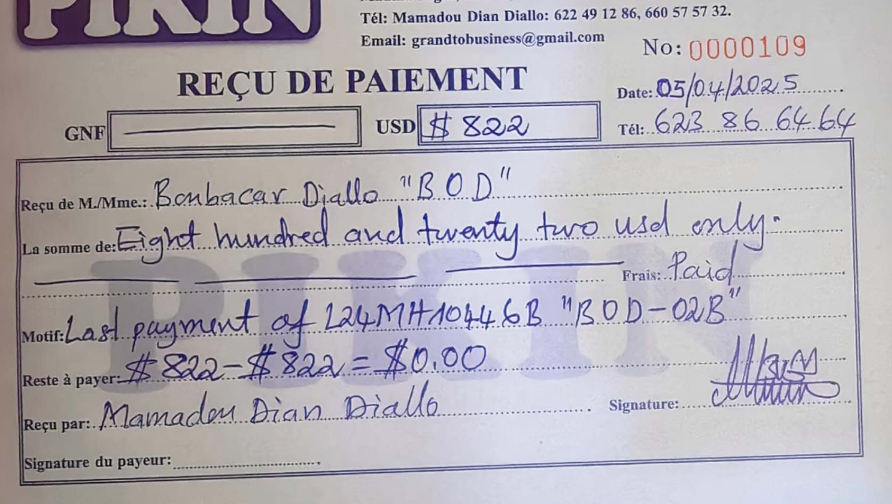 PIKIN
Tél: Mamadou Dian Diallo: 622 49 12 86, 660 57 57 32.
Email: grandtobusiness@gmail.com
No: 0000109
REÇU DE PAIEMENT
Date: 05/04/2025
GNF
USD $ 822
Tél: 623 86 64 64
Reçu de M./Mme.: Boubacar Diallo "BOD"
La somme de: Eight hundred and twenty two usd only.
Frais: Paid
Motif: Last payment of L24MH10446B "BOD-02B"
Reste à payer: $822-$822=$0.00
Reçu par: Mamadou Dian Diallo
Signature:
Signature du payeur:
PIKIN